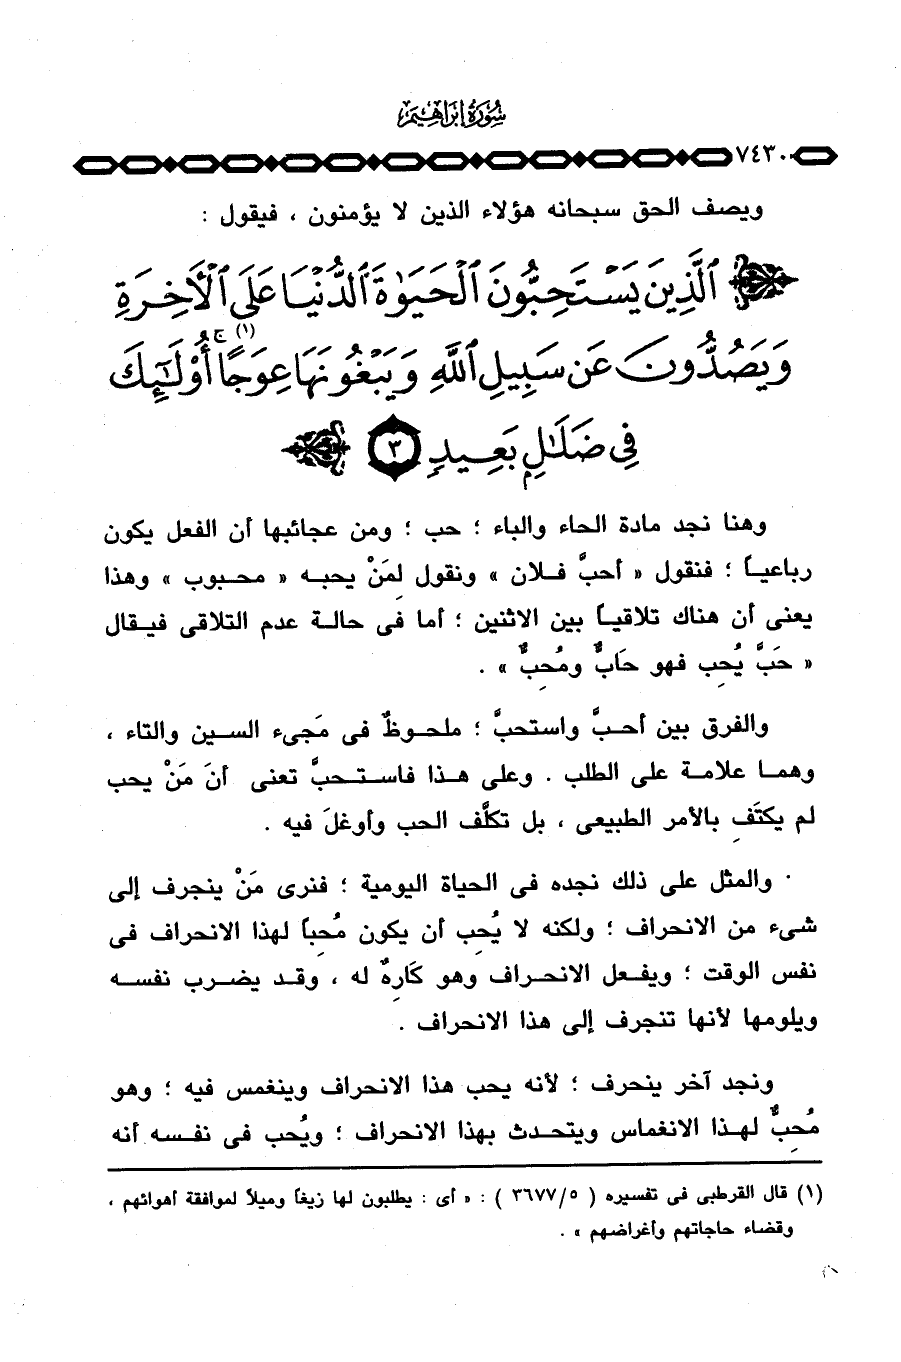 سُورَةُ إِبْرَاهِيمَ
٧٤٣٠
ويصف الحق سبحانه هؤلاء الذين لا يؤمنون ، فيقول :
ٱلَّذِينَ يَسْتَحِبُّونَ ٱلْحَيَوٰةَ ٱلدُّنْيَا عَلَى ٱلْأَخِرَةِ
وَيَصُدُّونَ عَن سَبِيلِ ٱللَّهِ وَيَبْغُونَهَا عِوَجًا (١) ۚ أُوْلَٰٓئِكَ
فِى ضَلَٰلِۭ بَعِيدٍ ٣
وهنا نجد مادة الحاء والباء ؛ حب ؛ ومن عجائبها أن الفعل يكون
رباعياً ؛ فنقول « أحبَّ فلان » ونقول لِمَنْ يحبه « محبوب » وهذا
يعنى أن هناك تلاقياً بين الاثنين ؛ أما فى حالة عدم التلاقى فيقال
« حَبَّ يُحِب فهو حَابٌّ ومُحِبٌّ » .
والفرق بين أحبَّ واستحبَّ ؛ ملحوظٌ فى مَجىء السين والتاء ،
وهما علامة على الطلب . وعلى هذا فاستحبَّ تعنى أنَ مَنْ يحب
لم يكتَفِ بالأمر الطبيعى ، بل تكلَّف الحب وأوغلَ فيه .
والمثل على ذلك نجده فى الحياة اليومية ؛ فنرى مَنْ ينجرف إلى
شىء من الانحراف ؛ ولكنه لا يُحِب أن يكون مُحِباً لهذا الانحراف فى
نفس الوقت ؛ ويفعل الانحراف وهو كَارِهٌ له ، وقد يضرب نفسه
ويلومها لأنها تنجرف إلى هذا الانحراف .
ونجد آخر ينحرف ؛ لأنه يحب هذا الانحراف وينغمس فيه ؛ وهو
مُحِبٌّ لهذا الانغماس ويتحدث بهذا الانحراف ؛ ويُحب فى نفسه أنه
(١) قال القرطبى فى تفسيره ( ٣٦٧٧/٥ ) : « أى : يطلبون لها زيغاً وميلاً لموافقة أهوائهم ،
وقضاء حاجاتهم وأغراضهم » .